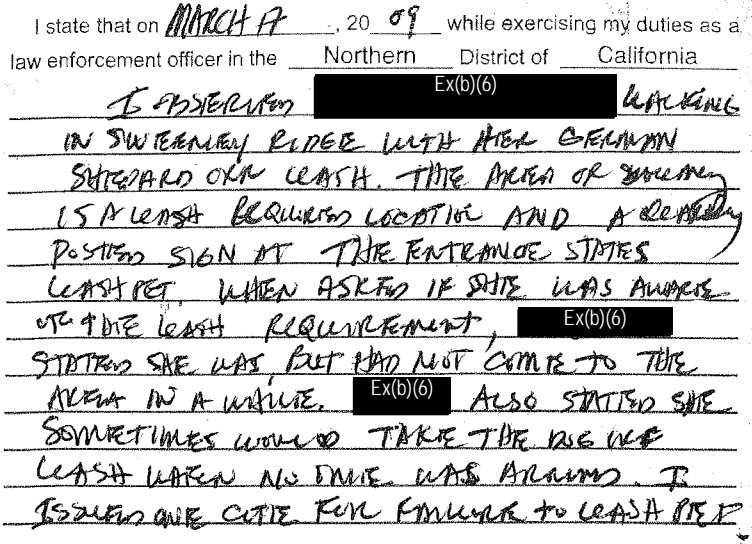 I state that on MARCH 17, 20 09 while exercising my duties as a
law enforcement officer in the Northern District of California
I OBSERVED Ex(b)(6) WALKING
IN SWEENEY RIDGE WITH HER GERMAN
SHEPARD OFF LEASH. THE AREA OF SWEENEY
IS A LEASH REQUIRED LOCATION AND A CLEARLY
POSTED SIGN AT THE ENTRANCE STATES
LEASH PET. WHEN ASKED IF SHE WAS AWARE
OF THE LEASH REQUIREMENT, Ex(b)(6)
STATED SHE WAS, BUT HAD NOT COME TO THE
AREA IN A WHILE. Ex(b)(6) ALSO STATED SHE
SOMETIMES WOULD TAKE THE DOG OFF
LEASH WHEN NO ONE WAS AROUND. I
ISSUED ONE CITE FOR FAILURE TO LEASH PET